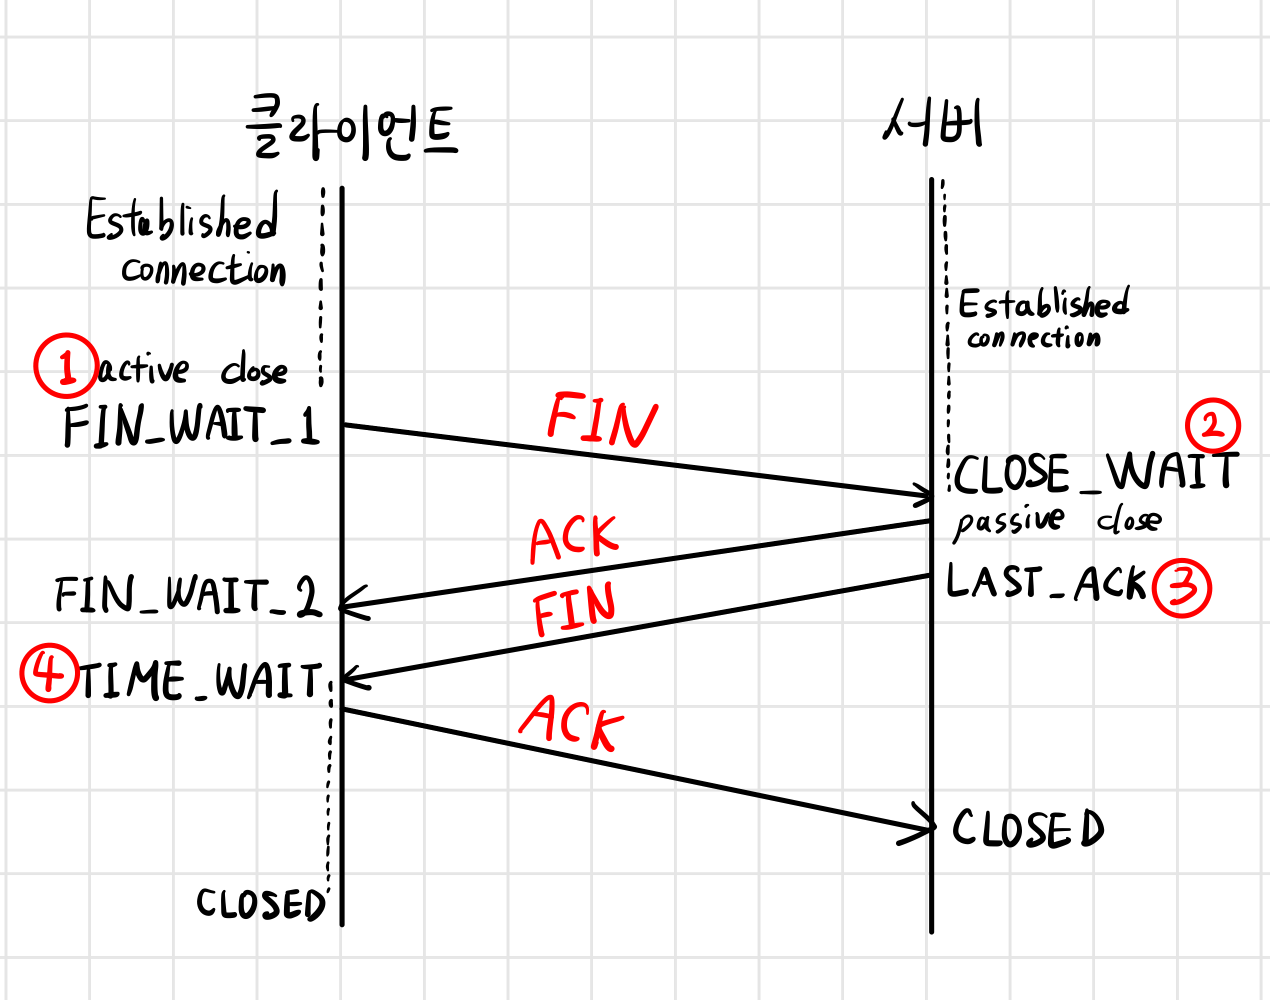 클라이언트
서버
Established
connection
Established
connection
① active close
FIN_WAIT_1
FIN
②
CLOSE_WAIT
passive close
ACK
FIN_WAIT_2
FIN
LAST_ACK ③
④ TIME_WAIT
ACK
CLOSED
CLOSED